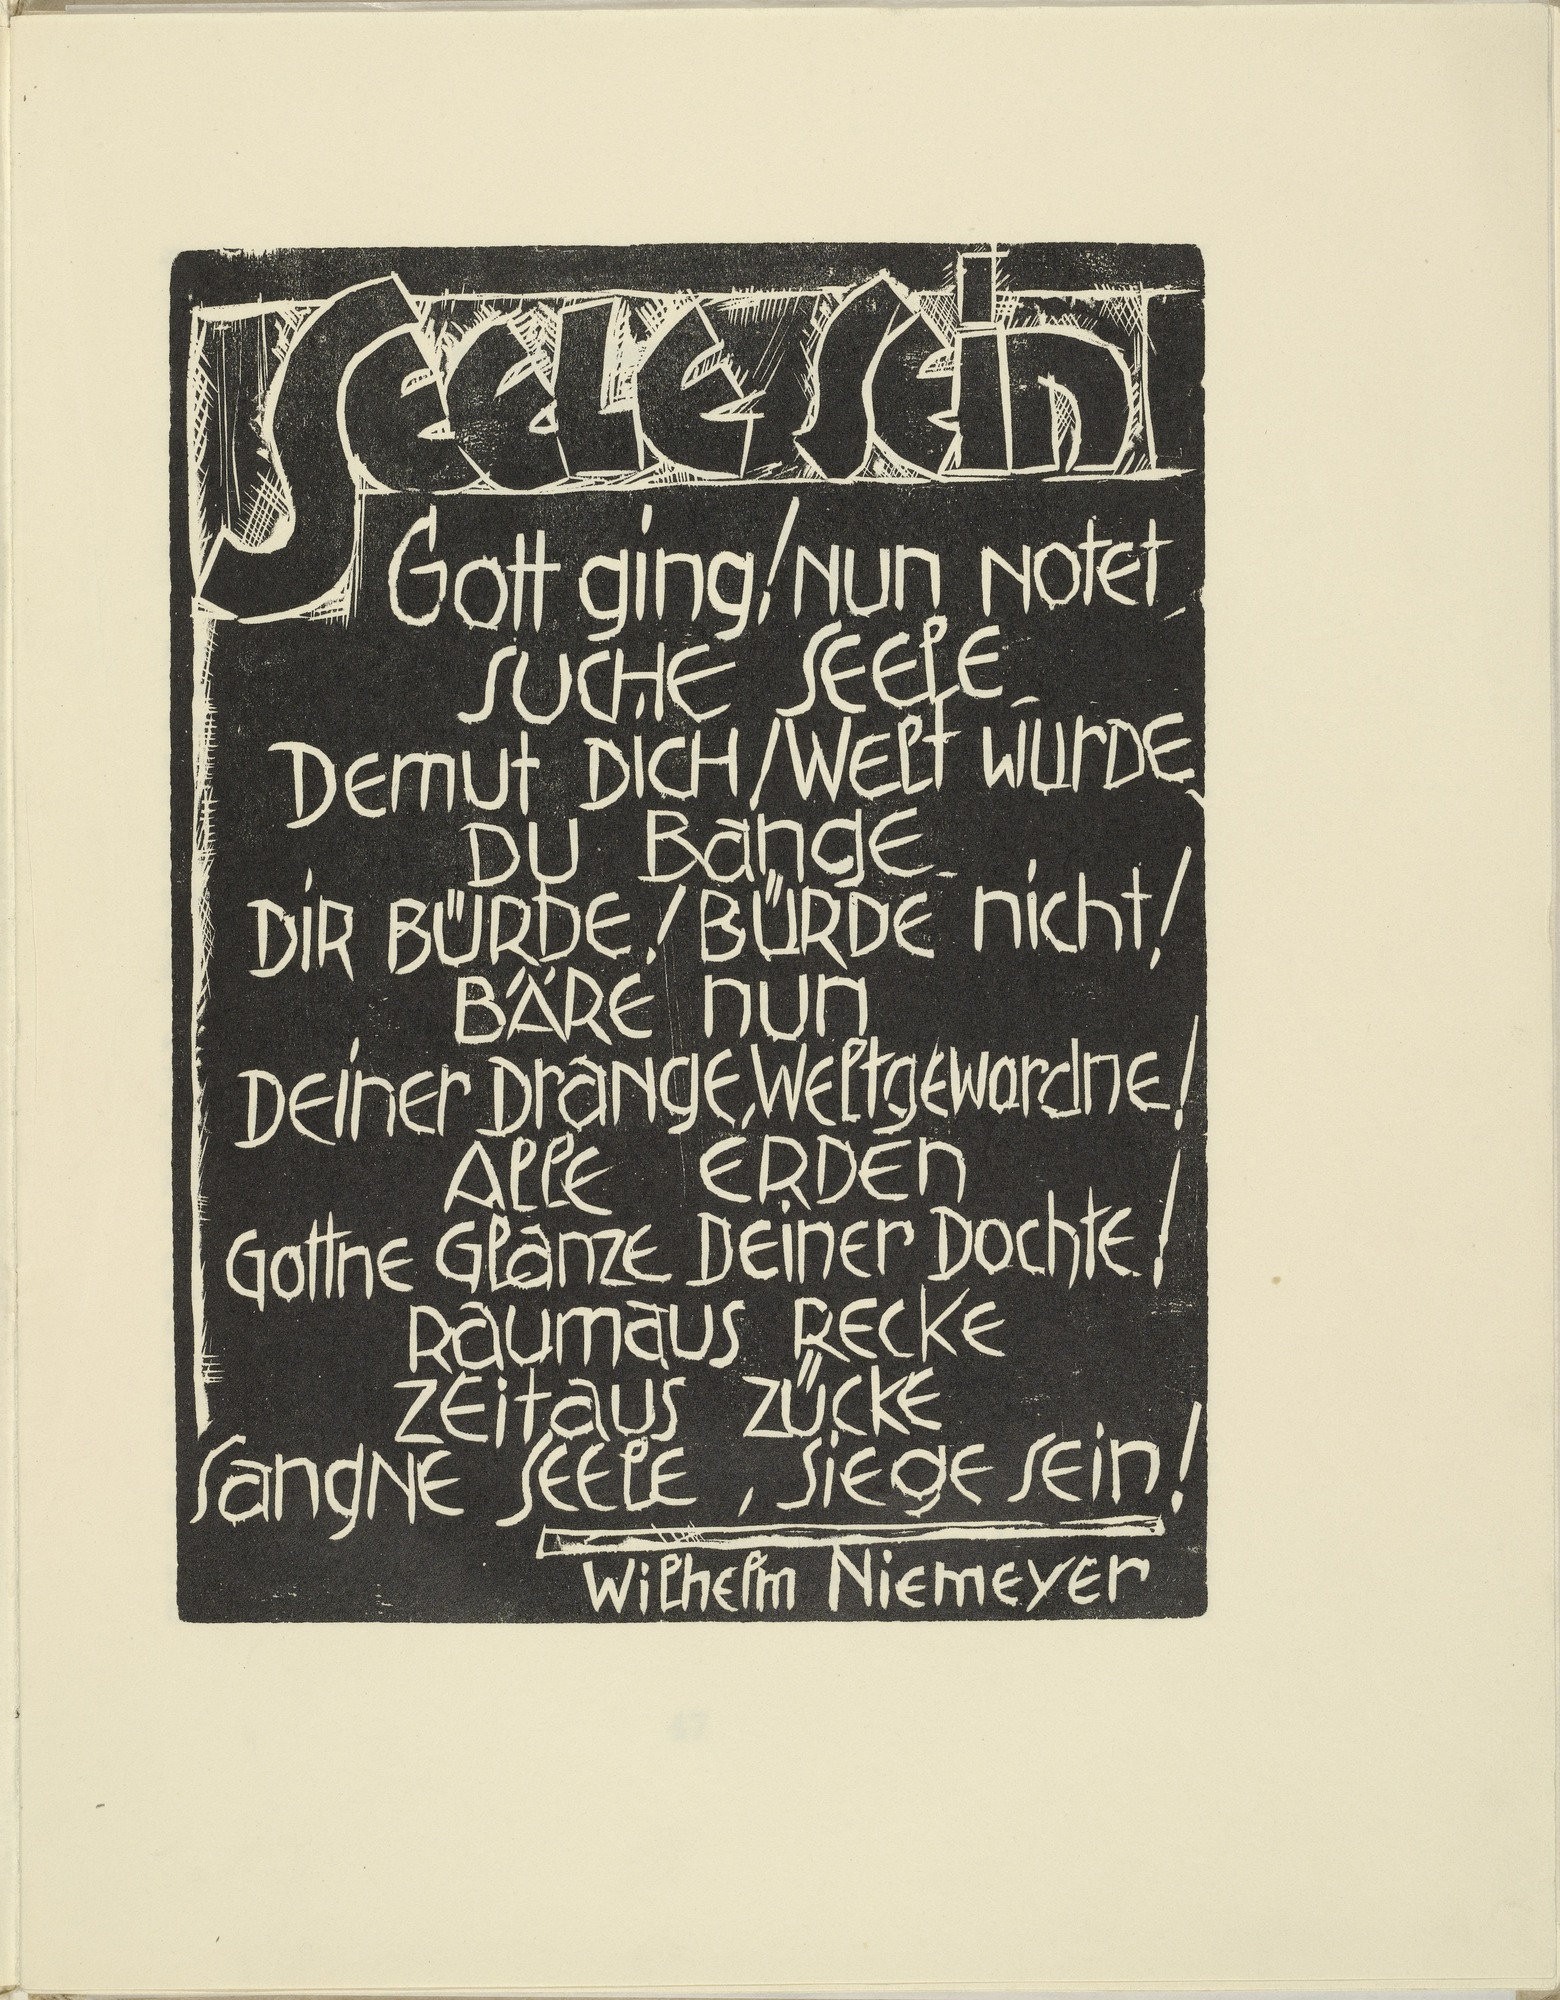 Seele sein
Gott ging! nun notet
SUCHE SEELE
Demut DICH! WELT WURDE
DU BANGE
DIR BÜRDE! BÜRDE nicht!
BÄRE nun
Deiner Drange, Weltgewordne!
ALLE ERDEN
Gottne Glanze Deiner Dochte!
Raumaus RECKE
Zeitaus ZÜCKE
Sangne Seele, Siege sein!
Wilhelm Niemeyer